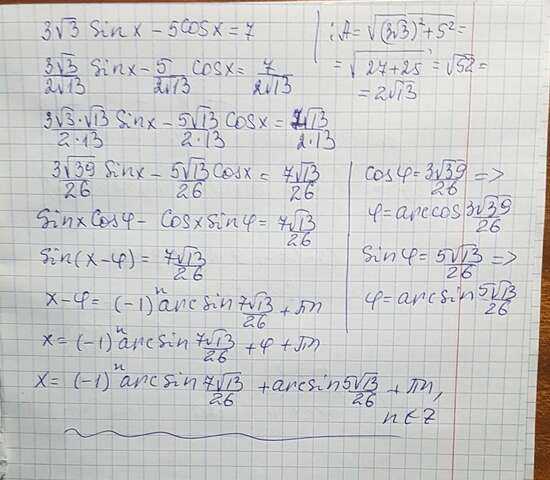 3√3 Sinx - 5Cosx = 7
3√3/2√13 Sinx - 5/2√13 Cosx = 7/2√13
3√3·√13/2·13 Sinx - 5√13/2·13 Cosx = 7√13/2·13
3√39/26 Sinx - 5√13/26 Cosx = 7√13/26
Sinx Cosφ - Cosx Sinφ = 7√13/26
Sin(x-φ) = 7√13/26
x-φ = (-1)ⁿ arcSin 7√13/26 + πn
x = (-1)ⁿ arcSin 7√13/26 + φ + πn
x = (-1)ⁿ arcSin 7√13/26 + arcSin 5√13/26 + πn,
n∈Z
:A = √((3√3)²+5²) =
= √(27+25) = √52 =
= 2√13
Cosφ = 3√39/26 =>
φ = arccos 3√39/26
Sinφ = 5√13/26 =>
φ = arcSin 5√13/26